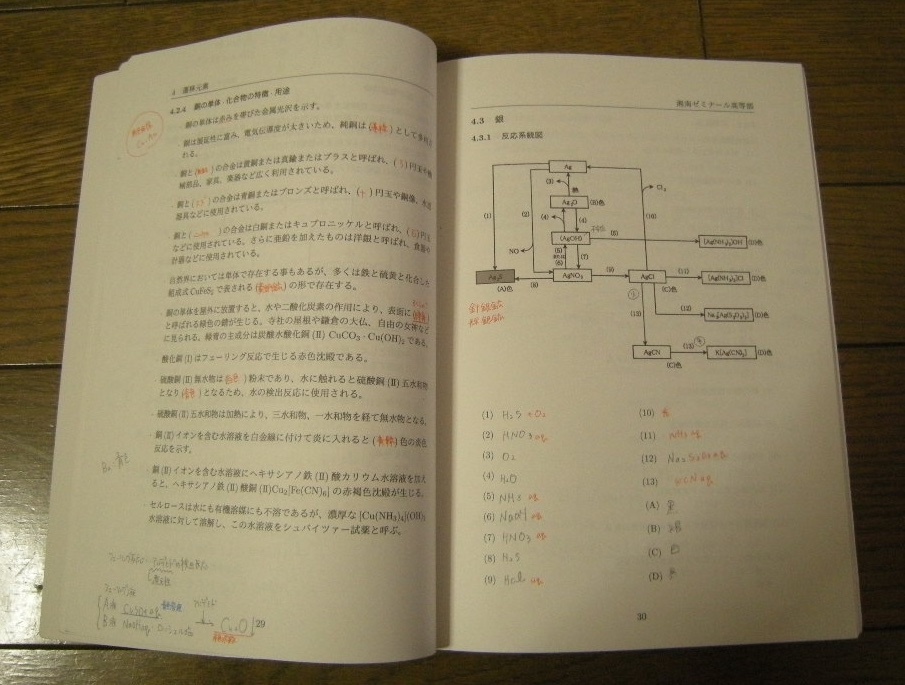 4 遷移元素
4.2.4 銅の単体·化合物の特徴·用途
銅の単体は赤みを帯びた金属光沢を示す。
銅は展延性に富み、電気伝導度が大きいため、純銅は(導線)として多
れる。
銅と( )の合金は黄銅または真鍮またはブラスと呼ばれ、(5)円玉や
補用品、家具、楽器など広く利用されている。
銅と( )の合金は青銅またはブロンズと呼ばれ、(十)円玉や銅像、水
器具などに使用されている。
銅と( )の合金は白銅またはキュプロニッケルと呼ばれ、( )円玉
などに使用されている。さらに亜鉛を加えたものは洋銀と呼ばれ、食器や
計器などに使用されている。
自然界においては単体で存在する事もあるが、多くは鉄と硫黄と化合した
組成式CuFeS₂で表される(黄銅鉱)の形で存在する。
銅の単体を屋外に放置すると、水や二酸化炭素の作用により、表面に(緑青)
と呼ばれる緑色の錆が生じる。寺社の屋根や鎌倉の大仏、自由の女神など
に見られる。緑青の主成分は炭酸水酸化銅(II) CuCO₃·Cu(OH)₂である。
酸化銅(I)はフェーリング反応で生じる赤色沈殿である。
硫酸銅(II)無水物は(白色)粉末であり、水に触れると硫酸銅(II)五水和物
となり(青色)となるため、水の検出反応に使用される。
硫酸銅(II)五水和物は加熱により、三水和物、一水和物を経て無水物となる。
銅(II)イオンを含む水溶液を白金線に付けて炎に入れると(青緑)色の炎色
反応を示す。
銅(II)イオンを含む水溶液にヘキサシアノ鉄(II)酸カリウム水溶液を加え
ると、ヘキサシアノ鉄(II)酸銅(II)Cu₂[Fe(CN)₆]の赤褐色沈殿が生じる。
セルロースは水にも有機溶媒にも不溶であるが、濃厚な[Cu(NH₃)₄](OH)₂
水溶液に対して溶解し、この水溶液をシュバイツァー試薬と呼ぶ。
A液 CuSO₄aq
B液
Cu₂O
29
湘南ゼミナール高等部
4.3 銀
4.3.1 反応系統図
Ag
Cl₂
(3) 熱
Ag₂O (B)色
(1) (2) (4) (4) (10)
(AgOH) (6) [Ag(NH₃)₂]OH (D)色
NO (5) (6) (7)
Ag₂S (8) AgNO₃ (9) AgCl (11) [Ag(NH₃)₂]Cl (D)色
(A)色 (C)色
針銀鉱
輝銀鉱
(12) Na₃[Ag(S₂O₃)₂] (D)色
(13)
AgCN (13) K[Ag(CN)₂] (D)色
(C)色
(1) H₂S + O₂
(2) HNO₃ aq
(3) O₂
(4) H₂O
(5) NH₃ aq
(6) NaOH aq
(7) HNO₃ aq
(8) H₂S
(9) HCl aq
(10) 光
(11) NH₃ aq
(12) Na₂S₂O₃ aq
(13) KCN aq
(A) 黒
(B) 褐
(C) 白
(D) 無
30